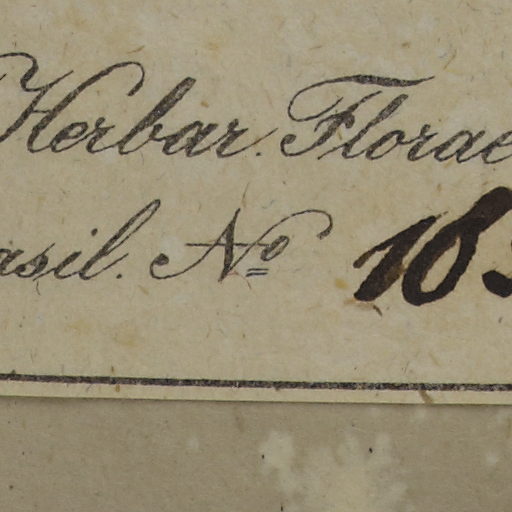 Herbar. Florae
asil. Nº 18